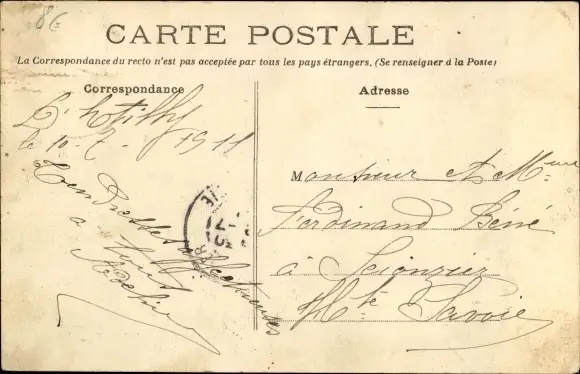 8€
CARTE POSTALE
La Correspondance du recto n'est pas acceptée par tous les pays étrangers. (Se renseigner à la Poste)
Correspondance
le 10-7-1911
Tendresses affectueuses
à tous
Adresse
Monsieur et Mme
Ferdinand
à Scionzier
Hte Savoie